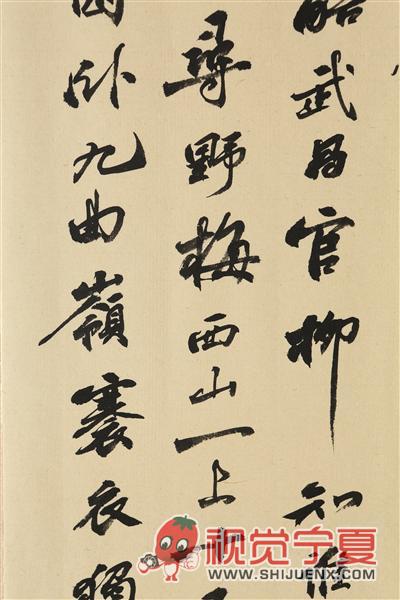 武昌官柳知
尋野梅西山一上
卧九曲嶺褰衣獨
视觉宁夏
WWW.SHIJUENX.COM